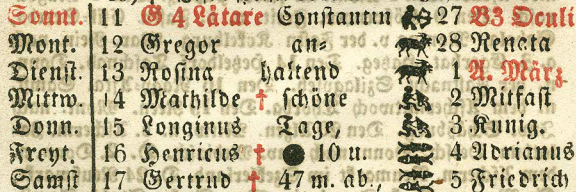 Sonnt. 11 G 4 Lätare Constantin 27 B3 Oculi
Mont. 12 Gregor an- 28 Renata
Dienst. 13 Rosina haltend 1 A. März.
Mittw. 14 Mathilde † schöne 2 Mitfast
Donn. 15 Longinus Tage, 3 Kunig.
Freyt. 16 Henricus † ● 10 u. 4 Adrianus
Samst 17 Gertrud † 47 m. ab, 5 Friedrich